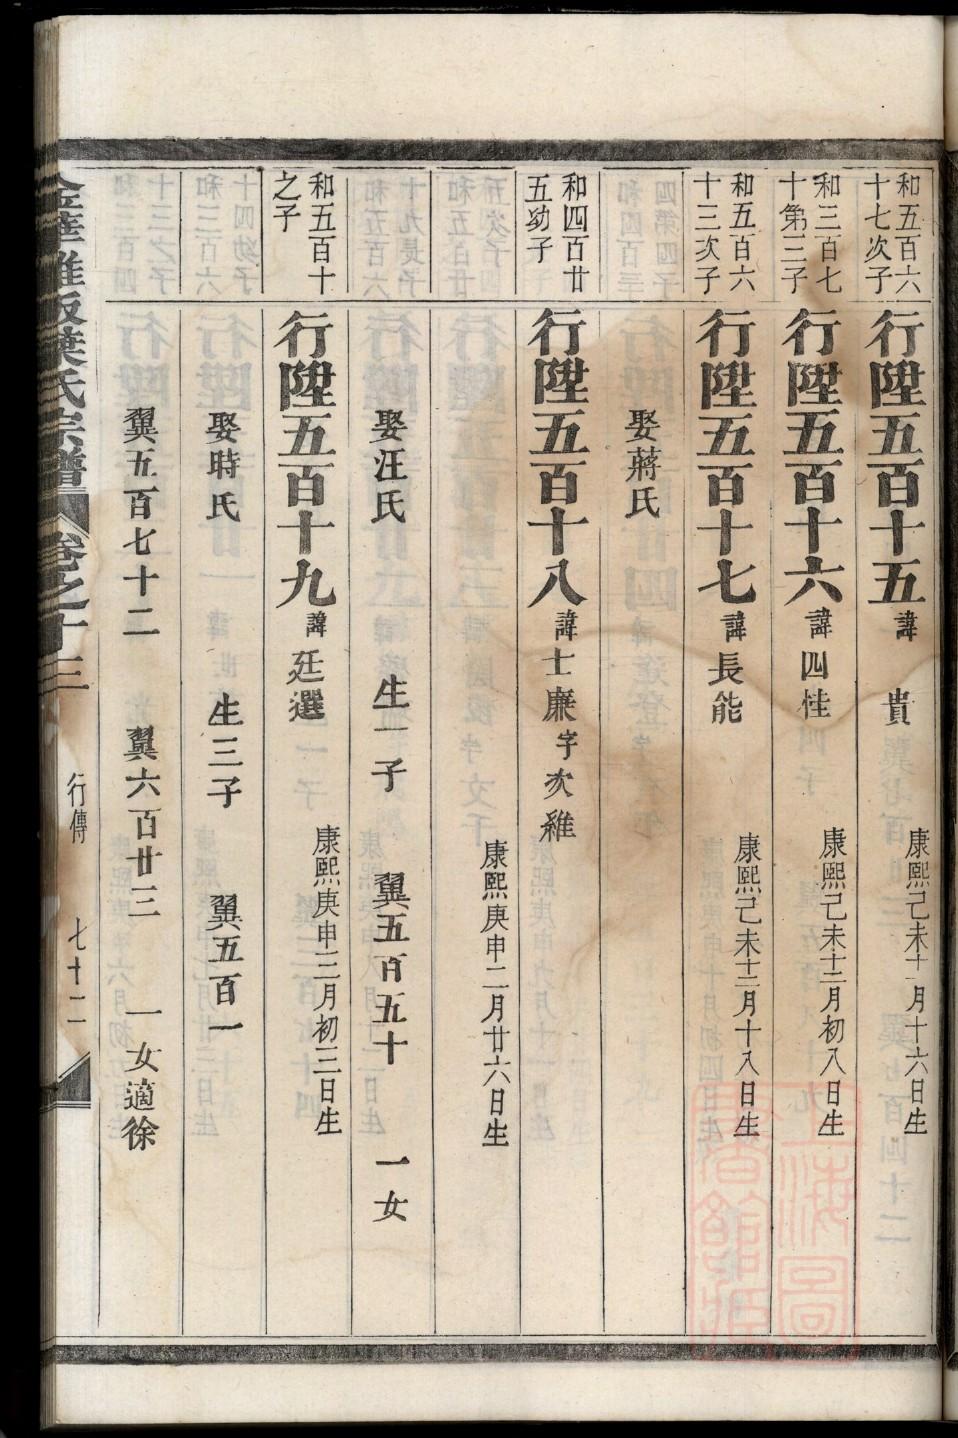 和五百六十七次子
行陞五百十五 諱 貴
康熙己未十一月十六日生
和三百七十第三子
行陞五百十六 諱四桂
康熙己未十二月初八日生
和五百六十三次子
行陞五百十七 諱長能
康熙己未十二月十八日生
娶蔣氏
和四百廿五幼子
行陞五百十八 諱士廉 字次維
康熙庚申二月廿六日生
娶汪氏 生一子 翼五百五十 一女
和五百十之子
行陞五百十九 諱廷選
康熙庚申三月初三日生
娶時氏 生三子 翼五百一
翼五百七十二 翼六百廿三 一女適徐
葉氏宗譜 卷之十三 行傳 七十二
上海圖